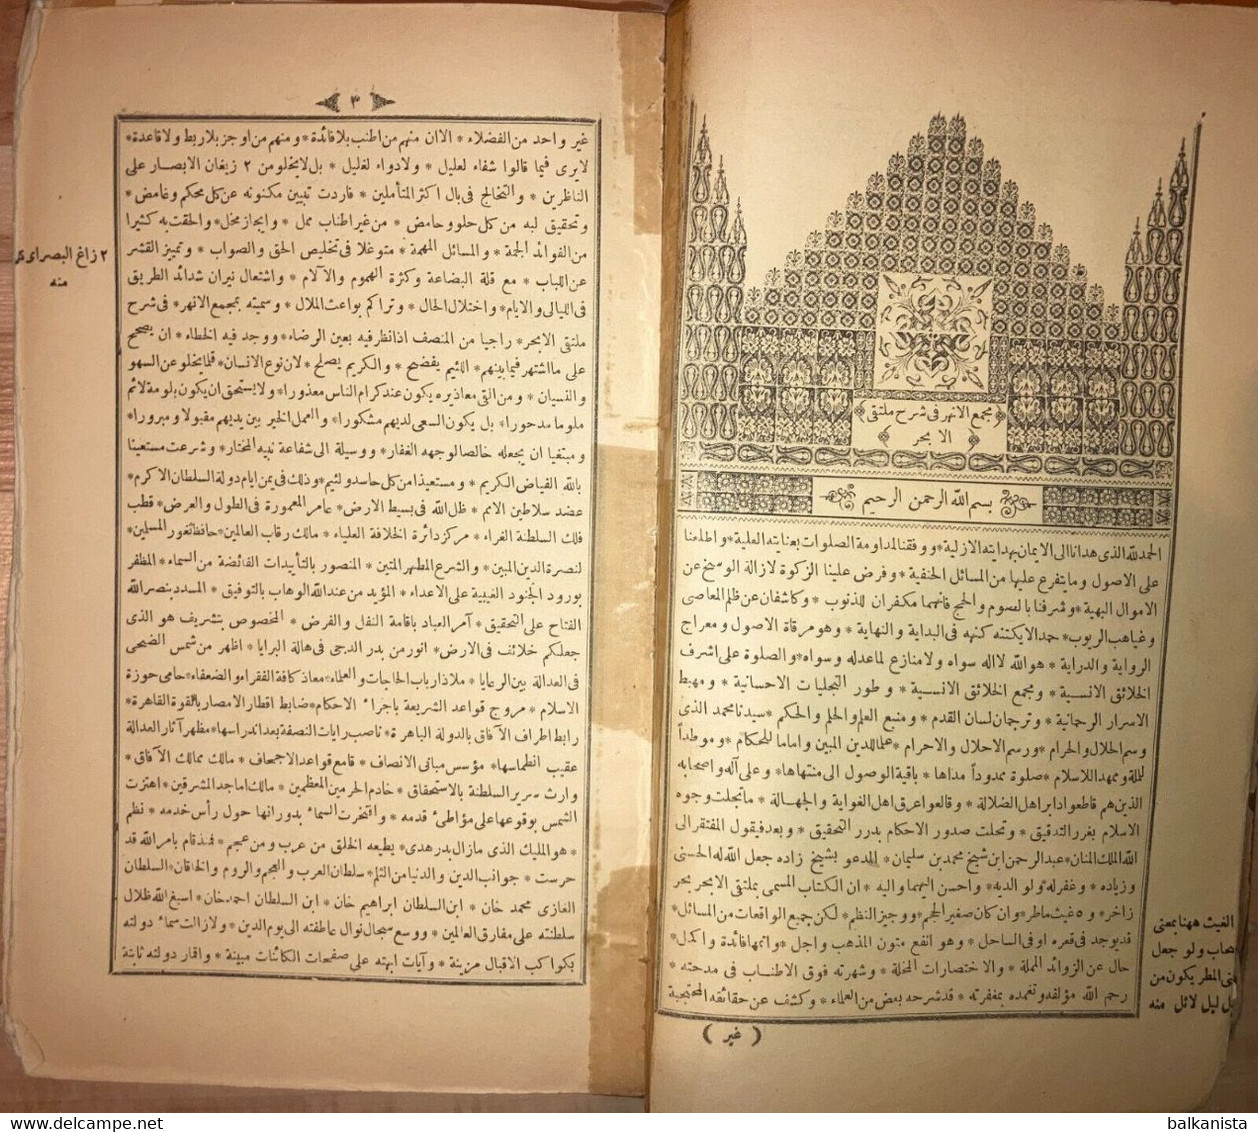 ﴿ مجمع الانهر فى شرح ملتقى ﴾
﴿ الابحر ﴾
بسم الله الرحمن الرحيم
الحمدلله الذى هدانا الى الايمان بهدايته الازلية * ووفقنا لمداومة الصلوات بعنايته العلية * واطلعنا
على الاصول وما يتفرع عليها من المسائل الحنفية * وفرض علينا الزكوة لازالة الوسخ عن
الاموال البهية * وشرفنا بالصوم والحج فانهما مكفران للذنوب * وكاشفان عن ظلم المعاصى
وغياهب الريوب * حمدا لا يكتنه كنهه فى البداية والنهاية * وهو مرقاة الاصول ومعراج
الرواية والدراية * هو الله لا اله سواه ولا منازع لما عدله وسواه * والصلوة على اشرف
الخلائق الانسية * ومجمع الحقائق الانسية * وطور التجليات الاحسانية * ومهبط
الاسرار الرحمانية * وترجمان لسان القدم * ومنبع العلم والحلم والحكم * سيدنا محمد الذى
وسم الحلال والحرام * ورسم الاحلال والاحرام * علما للدين المبين واماما للحكام * وموطدا
لملة وممهد الاسلام * صلوة ممدودا مداها * باقية الوصول الى منتهاها * وعلى آله واصحابه
الذين هم قاطعوا دابر اهل الضلالة * وقالعوا عرق اهل الغواية والجهالة * ما تجلت وجوه
الاسلام بغرر التدقيق * وتحلت صدور الاحكام بدرر التحقيق * وبعد فيقول المفتقر الى
الله الملك المنان * عبد الرحمن ابن شيخ محمد بن سليمان * المدعو بشيخ زاده جعل الله له الحسنى
وزياده * وغفر له ولوالديه * واحسن اليهما واليه * ان الكتاب المسمى بملتقى الابحر بحر
زاخر * و ٥ غيث ماطر * وان كان صغير الحجم * ووجيز النظم * لكن جميع الواقعات من المسائل *
قد يوجد فى قعره او فى الساحل * وهو انفع متون المذهب واجل * واتمها فائدة واكمل *
خال عن الزوائد المملة * والاختصارات المخلة * وشهرته فوق الاطناب فى مدحته *
رحم الله مؤلفه وتغمده بمغفرته * قد شرحه بعض من العلماء * وكشف عن حقائقه المحتجبة
الغيث ههنا بمعنى
سحاب ولو جعل
بمعنى المطر يكون من
قبيل ليل لائل منه
( غير )
٣
غير واحد من الفضلاء * الا ان منهم من اطنب بلا فائدة * ومنهم من اوجز بلا ربط ولا قاعدة *
لا يرى فيما قالوا شفاء لعليل * ولا دواء لغليل * بل لا يخلو من ٢ زيغان الابصار على
الناظرين * والتخالج فى بال اكثر المتأملين * فاردت تبيين مكنونه عن كل محكم وغامض *
وتحقيق لبه من كل حلو وحامض * من غير اطناب ممل * وايجاز مخل * والحقت به كثيرا
من الفوائد الجمة * والمسائل المهمة * متوغلا فى تخليص الحق والصواب * وتمييز القشر
عن اللباب * مع قلة البضاعة وكثرة الهموم والآلام * واشتعال نيران شدائد الطريق
فى الليالى والايام * واختلال الحال * وتراكم بواعث الملال * وسميته بمجمع الانهر * فى شرح
ملتقى الابحر * راجيا من المنصف اذا نظر فيه بعين الرضاء * ووجد فيه الخطاء * ان يصحح
على ما اشتهر فيما بينهم * اللئيم يفضح * والكريم يصلح * لان نوع الانسان * قلما يخلو عن السهو
والنسيان * ومن التى معاذيره يكون عند كرام الناس معذورا * ولا يستحق ان يكون بلومة لائم
ملوما مدحورا * بل يكون السعى لديهم مشكورا * والعمل الخير بين يديهم مقبولا ومبرورا *
ومبتغيا ان يجعله خالصا لوجهه الغفار * ووسيلة الى شفاعة نبيه المختار * وشرعت مستعينا
بالله الفياض الكريم * ومستعيذا من كل حاسد ولئيم * وذلك فى يمن ايام دولة السلطان الاكرم *
عضد سلاطين الامم * ظل الله فى بسيط الارض * عامر المعمورة فى الطول والعرض * قطب
فلك السلطنة الغراء * مركز دائرة الخلافة العلياء * مالك رقاب العالمين * حافظ ثغور المسلمين *
لنصرة الدين المبين * والشرع المطهر المتين * المنصور بالتأييدات الفائضة من السماء * المظفر
بورود الجنود الغيبية على الاعداء * المؤيد من عند الله الوهاب بالتوفيق * المسدد بنصر الله
الفتاح على التحقيق * آمر العباد باقامة النفل والفرض * المخصوص بتشريف هو الذى
جعلكم خلائف فى الارض * انور من بدر الدجى فى هالة البرايا * اظهر من شمس الضحى
فى العدالة بين الرعايا * ملاذ ارباب الحاجات والعلماء * معاذ كافة الفقراء والضعفاء * حامى حوزة
الاسلام * مروج قواعد الشريعة باجراء الاحكام * ضابط اقطار الامصار بالقوة القاهرة *
رابط اطراف الآفاق بالدولة الباهرة * ناصب رايات النصفة بعد اندراسها * مظهر آثار العدالة
عقيب انطماسها * مؤسس مبانى الانصاف * قامع قواعد الاجحاف * مالك ممالك الآفاق *
وارث سرير السلطنة بالاستحقاق * خادم الحرمين المعظمين * مالك اماجد المشرقين * اهتزت
الشمس بوقوعها على مواطئ قدمه * وافتخرت السماء بدورانها حول رأس خدمه * نظم
* هو المليك الذى مازال بدر هدى * يطيعه الخلق من عرب ومن عجم * فمذ قام بامر الله قد
حرست * جوانب الدين والدنيا من الثلم * سلطان العرب والعجم والروم والخاقان * السلطان
الغازى محمد خان * ابن السلطان ابراهيم خان * ابن السلطان احمد خان * اسبغ الله ظلال
سلطنته على مفارق العالمين * ووسع سجال نوال عاطفته الى يوم الدين * ولا زالت سماء دولته
بكواكب الاقبال مزينة * وآيات ابهته على صفحات الكائنات مبينة * واقمار دولته ثابتة
٢ زاغ البصر اى
منه
balkanista